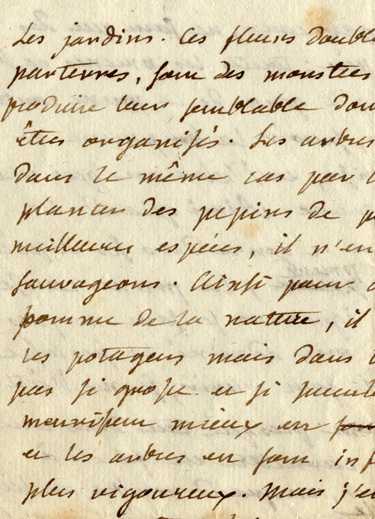 les jardins. Ces fleurs double
parterres, sont des monstres
produire leur semblable dont
êtres organisés. Les arbres
dans le même cas par
planter des pepins de p
meilleures espèces, il n'en
sauvageons. Ainsi pour
pomme de la nature, il
les potagers mais dans
pas si grosse et si succule
nourrissent mieux en
et les arbres en sont inf
plus vigoureux. Mais j'e